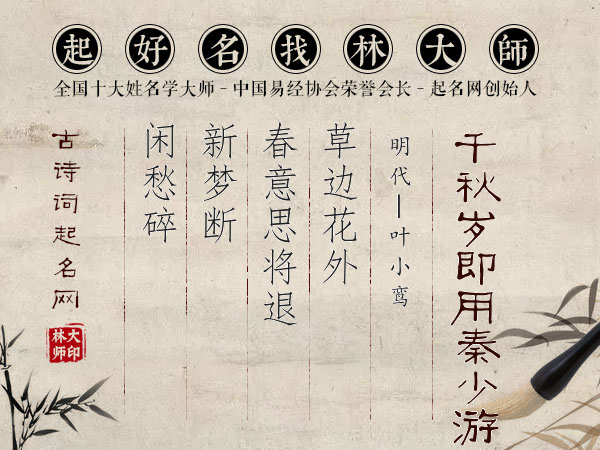 起好名找林大師
全国十大姓名学大师 - 中国易经协会荣誉会长 - 起名网创始人
千秋岁即用秦少游
明代—叶小鸾
草边花外
春意思将退
新梦断
闲愁碎
古诗词起名网
大印
林师